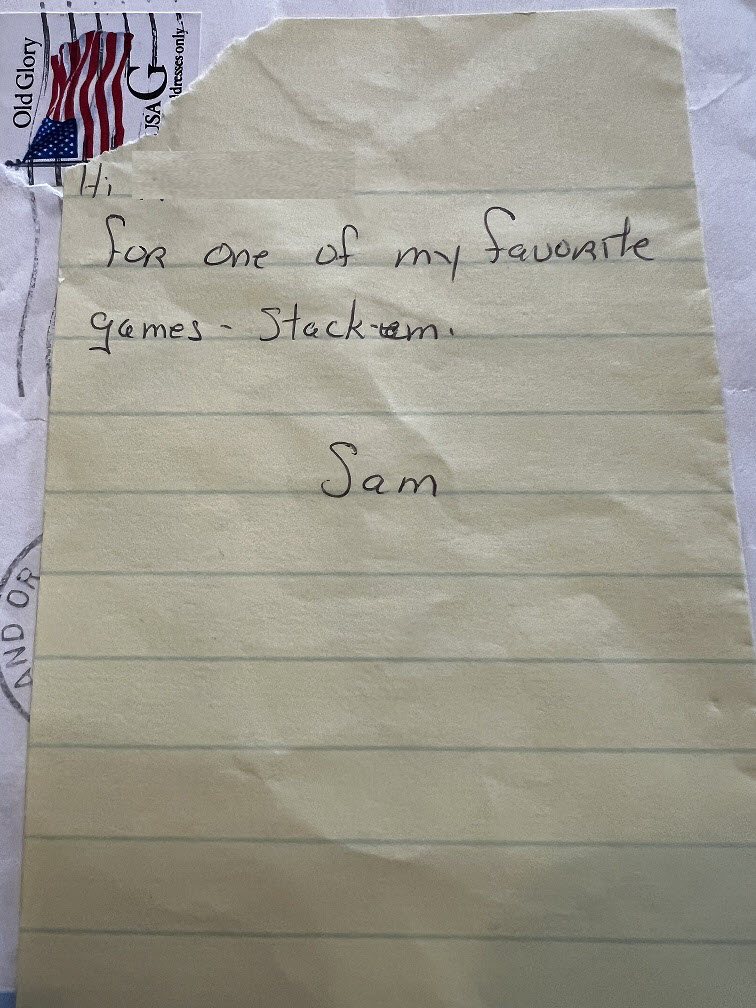 Old Glory
USA G
ddresses only
Hi
for one of my favorite
games - Stack-em.
Sam
AND OR